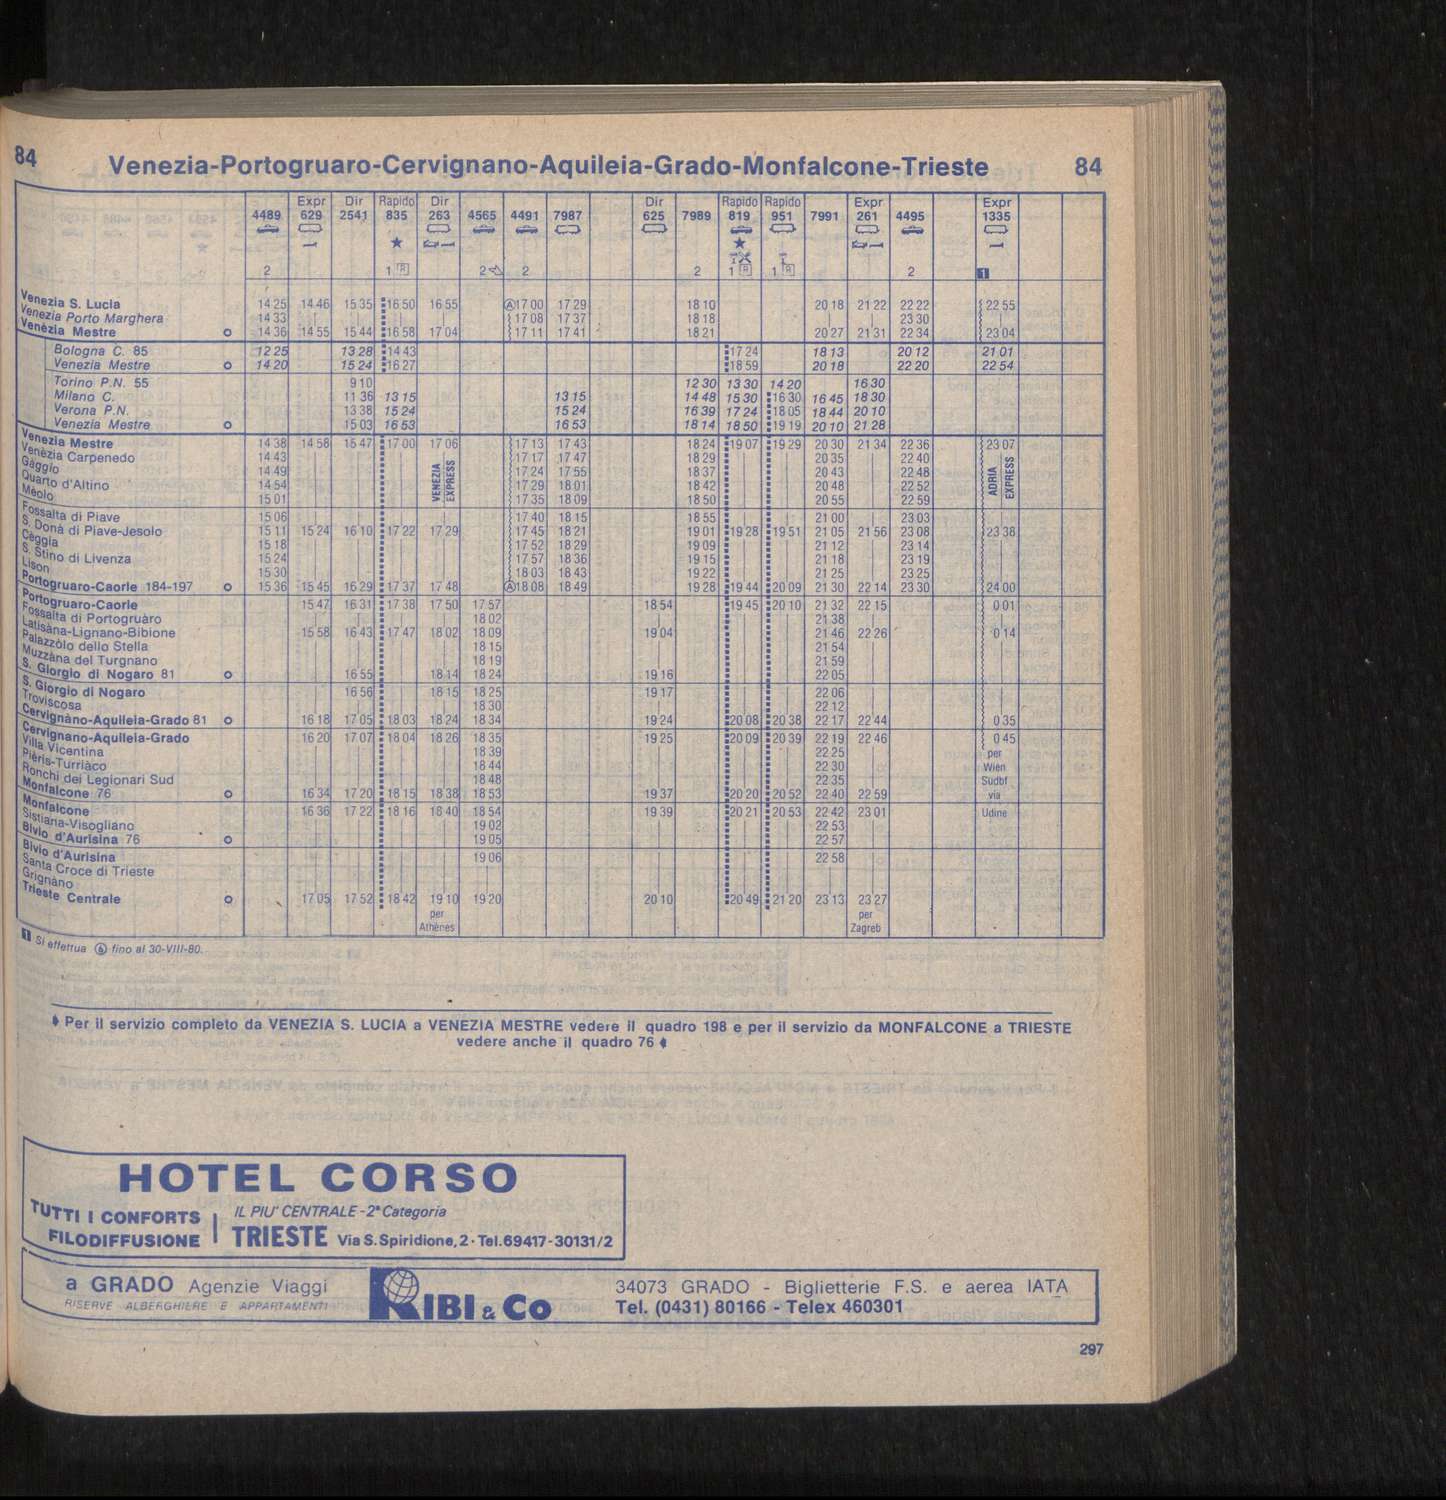 84 Venezia-Portogruaro-Cervignano-Aquileia-Grado-Monfalcone-Trieste 84
4489 Expr 629 Dir 2541 Rapido 835 Dir 263 4565 4491 7987 Dir 625 7989 Rapido 819 Rapido 951 7991 Expr 261 4495 Expr 1335
2 1 R 2 2 2 1 R 1 R 2 1
Venezia S. Lucia 14 25 14 46 15 35 16 50 16 55 A 17 00 17 29 18 10 20 18 21 22 22 22 22 55
Venezia Porto Marghera 14 33 | | | | 17 08 17 37 18 18 | | 23 30 |
Venèzia Mestre o 14 36 14 55 15 44 16 58 17 04 17 11 17 41 18 21 20 27 21 31 22 34 23 04
Bologna C. 85 12 25 13 28 14 43 17 24 18 13 20 12 21 01
Venezia Mestre o 14 20 15 24 16 27 18 59 20 18 22 20 22 54
Torino P.N. 55 9 10 12 30 13 30 14 20 16 30
Milano C. 11 36 13 15 13 15 14 48 15 30 16 30 16 45 18 30
Verona P.N. 13 38 15 24 15 24 16 39 17 24 18 05 18 44 20 10
Venezia Mestre o 15 03 16 53 16 53 18 14 18 50 19 19 20 10 21 28
Venezia Mestre 14 38 14 58 15 47 17 00 17 06 17 13 17 43 18 24 19 07 19 29 20 30 21 34 22 36 23 07
Venèzia Carpenedo 14 43 | | | 17 17 17 47 18 29 | | 20 35 | 22 40
Gàggio 14 49 | | | VENEZIA EXPRESS 17 24 17 55 18 37 | | 20 43 | 22 48 ADRIA EXPRESS
Quarto d'Altino 14 54 | | | 17 29 18 01 18 42 | | 20 48 | 22 52
Mèolo 15 01 | | | 17 35 18 09 18 50 | | 20 55 | 22 59
Fossalta di Piave 15 06 | | | | 17 40 18 15 18 55 | | 21 00 | 23 03 |
S. Donà di Piave-Jesolo 15 11 15 24 16 10 17 22 17 29 17 45 18 21 19 01 19 28 19 51 21 05 21 56 23 08 23 38
Cèggia 15 18 | | | | 17 52 18 29 19 09 | | 21 12 | 23 14 |
S. Stino di Livenza 15 24 | | | | 17 57 18 36 19 15 | | 21 18 | 23 19 |
Lison 15 30 | | | | 18 03 18 43 19 22 | | 21 25 | 23 25 |
Portogruaro-Caorle 184-197 o 15 36 15 45 16 29 17 37 17 48 A 18 08 18 49 19 28 19 44 20 09 21 30 22 14 23 30 24 00
Portogruaro-Caorle 15 47 16 31 17 38 17 50 17 57 18 54 19 45 20 10 21 32 22 15 0 01
Fossalta di Portogruàro | | | | 18 02 | | | 21 38 | |
Latisàna-Lignano-Bibione 15 58 16 43 17 47 18 02 18 09 19 04 | | 21 46 22 26 0 14
Palazzòlo dello Stella | | | | 18 15 | | | 21 54 | |
Muzzàna del Turgnano | | | | 18 19 | | | 21 59 | |
S. Giorgio di Nogaro 81 o | 16 55 | 18 14 18 24 19 16 | | 22 05 | |
S. Giorgio di Nogaro | 16 56 | 18 15 18 25 19 17 | | 22 06 | |
Troviscosa | | | | 18 30 | | | 22 12 | |
Cervignàno-Aquileia-Grado 81 o 16 18 17 05 18 03 18 24 18 34 19 24 20 08 20 38 22 17 22 44 0 35
Cervignano-Aquileia-Grado 16 20 17 07 18 04 18 26 18 35 19 25 20 09 20 39 22 19 22 46 0 45
Villa Vicentina | | | | 18 39 | | | 22 25 | per
Pièris-Turriàco | | | | 18 44 | | | 22 30 | Wien
Ronchi dei Legionari Sud | | | | 18 48 | | | 22 35 | Sudbf
Monfalcone 76 o 16 34 17 20 18 15 18 38 18 53 19 37 20 20 20 52 22 40 22 59 via
Monfalcone 16 36 17 22 18 16 18 40 18 54 19 39 20 21 20 53 22 42 23 01 Udine
Sistiana-Visogliano | | | | 19 02 | | | 22 53 |
Bivio d'Aurisina 76 o | | | | 19 05 | | | 22 57 |
Bivio d'Aurisina | | | | 19 06 | | | 22 58 |
Santa Croce di Trieste | | | | | | | | | |
Grignàno | | | | | | | | | |
Trieste Centrale o 17 05 17 52 18 42 19 10 19 20 20 10 20 49 21 20 23 13 23 27
per Athènes per Zagreb
1 Si effettua 6 fino al 30-VIII-80.
Per il servizio completo da VENEZIA S. LUCIA a VENEZIA MESTRE vedere il quadro 198 e per il servizio da MONFALCONE a TRIESTE
vedere anche il quadro 76
HOTEL CORSO
TUTTI I CONFORTS
FILODIFFUSIONE
IL PIU' CENTRALE - 2ª Categoria
TRIESTE Via S. Spiridione, 2 · Tel. 69417 - 30131/2
a GRADO Agenzie Viaggi
RISERVE ALBERGHIERE E APPARTAMENTI
RIBI & Co
34073 GRADO - Biglietterie F.S. e aerea IATA
Tel. (0431) 80166 - Telex 460301
297